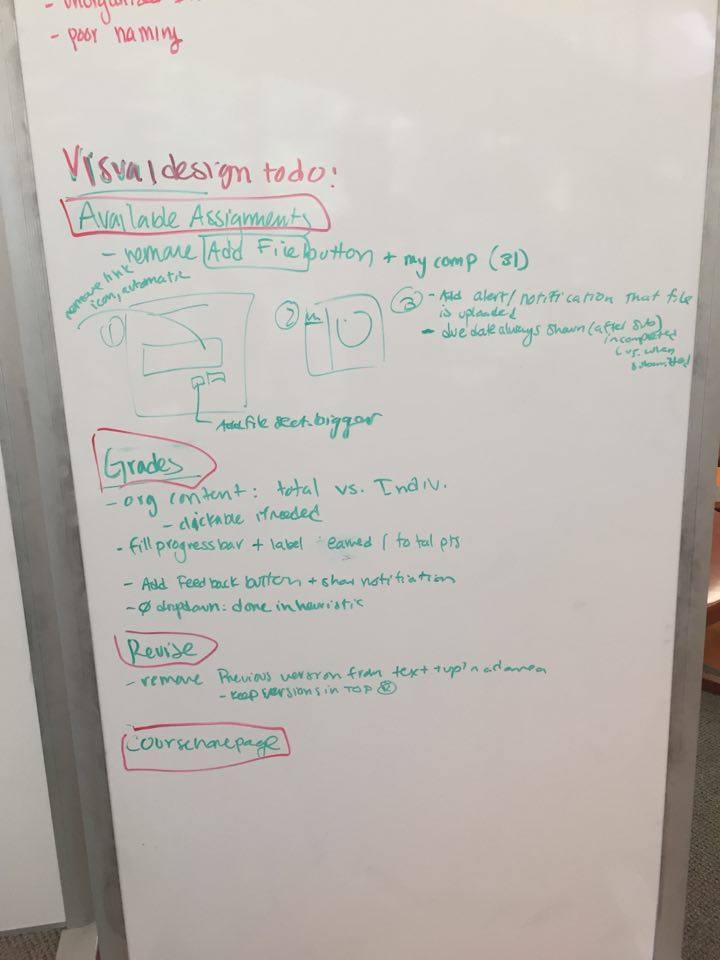 - poor naming
Visual design todo:
Available Assignments
- remove Add File button + my comp (31)
remove link
icon, automatic
①
②
③ - Add alert/notification that file
is uploaded
- due date always shown (after sub)
incompleted
vs. when
submitted
Add file sect. bigger
Grades
- org content: total vs. Indiv.
- clickable if needed
- fill progress bar + label earned / total pts
- Add Feedback button + show notifiation
- Ø dropdown: done in heuristic
Revise
- remove Previous version from text + upl'nad area
- keep versions in TOP
coursehomepage